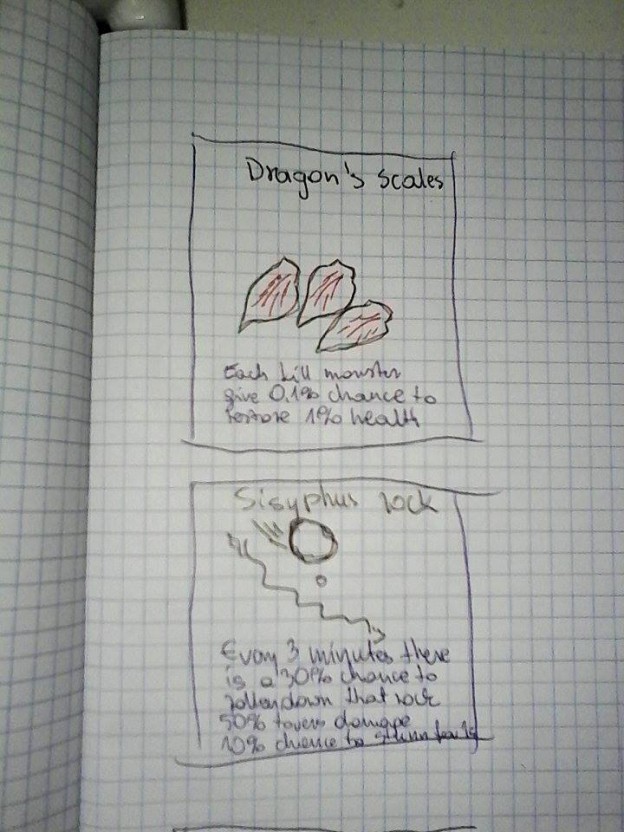 Dragon's scales
Each kill monster
give 0,1% chance to
restore 1% health
Sisyphus rock
Every 3 minutes there
is a 30% chance to
rollerdown that rock
50% towers damage
10% chance to stunn for 1s